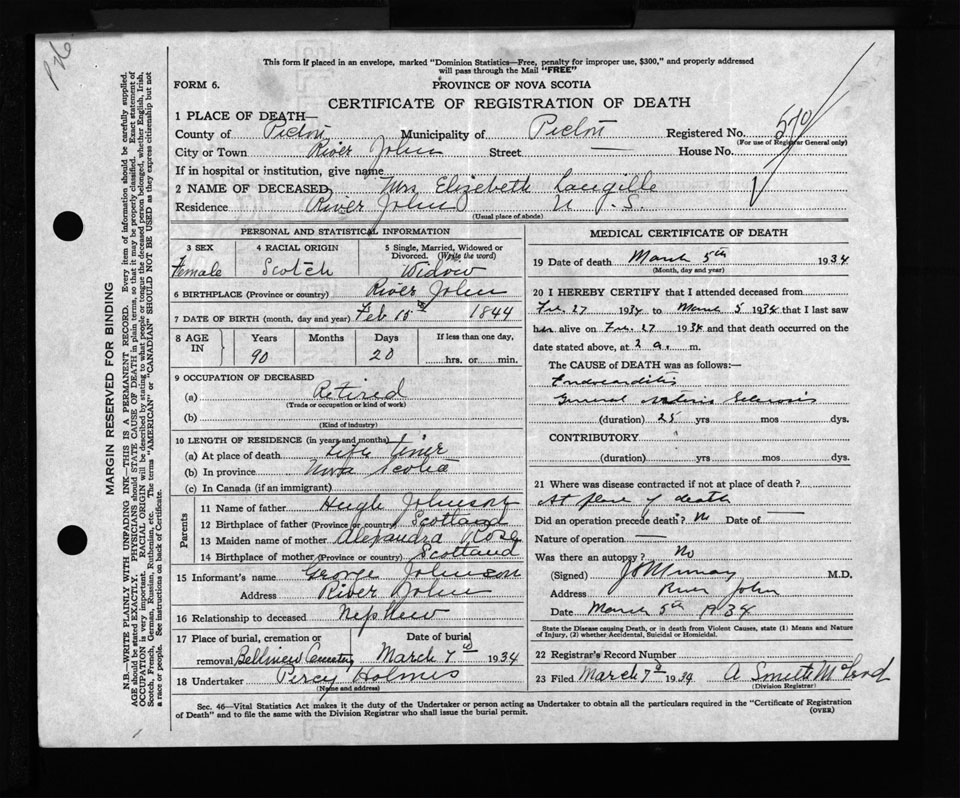 This form if placed in an envelope, marked "Dominion Statistics—Free, penalty for improper use, $300," and properly addressed
will pass through the Mail "FREE"
FORM 6.
PROVINCE OF NOVA SCOTIA
CERTIFICATE OF REGISTRATION OF DEATH
1 PLACE OF DEATH—
County of Pictou Municipality of Pictou Registered No. 570
(For use of Registrar General only)
City or Town River John Street — House No.
If in hospital or institution, give name
2 NAME OF DECEASED Mrs Elizebeth Langille
Residence River John N. S.
(Usual place of abode)
PERSONAL AND STATISTICAL INFORMATION
3 SEX Female
4 RACIAL ORIGIN Scotch
5 Single, Married, Widowed or Divorced. (Write the word) Widow
6 BIRTHPLACE (Province or country) River John
7 DATE OF BIRTH (month, day and year) Feb 15 1844
8 AGE IN Years 90 Months Days 20 If less than one day, hrs. or min.
9 OCCUPATION OF DECEASED
(a) Retired
(Trade or occupation or kind of work)
(b)
(Kind of industry)
10 LENGTH OF RESIDENCE (in years and months)
(a) At place of death Life time
(b) In province Nova Scotia
(c) In Canada (if an immigrant)
Parents
11 Name of father Hugh Johnson
12 Birthplace of father (Province or country) Scotland
13 Maiden name of mother Alexandra Ross
14 Birthplace of mother (Province or country) Scotland
15 Informant's name George Johnson
Address River John
16 Relationship to deceased Nephew
17 Place of burial, cremation or removal Bellview Cemetery
Date of burial March 7 1934
18 Undertaker Percy Holmes
(Name and address)
MEDICAL CERTIFICATE OF DEATH
19 Date of death March 5th 1934
(Month, day and year)
20 I HEREBY CERTIFY that I attended deceased from
Feb. 27 1934 to March 5 1934 that I last saw
her alive on Feb. 27 1934 and that death occurred on the
date stated above, at 2 a. m.
The CAUSE OF DEATH was as follows:—
Endocarditis
General Sclerosis
(duration) 25 yrs mos dys.
CONTRIBUTORY
(duration) yrs mos dys.
21 Where was disease contracted if not at place of death?
At place of death
Did an operation precede death? No Date of —
Nature of operation —
Was there an autopsy? No
(Signed) Murray M.D.
Address River John
Date March 5th 1934
State the Disease causing Death, or in death from Violent Causes, state (1) Means and Nature
of Injury, (2) whether Accidental, Suicidal or Homicidal.
22 Registrar's Record Number
23 Filed March 7 1934 A Smith McLeod
(Division Registrar)
Sec. 46—Vital Statistics Act makes it the duty of the Undertaker or person acting as Undertaker to obtain all the particulars required in the "Certificate of Registration
of Death" and to file the same with the Division Registrar who shall issue the burial permit.
(OVER)
MARGIN RESERVED FOR BINDING
N.B.—WRITE PLAINLY WITH UNFADING INK—THIS IS A PERMANENT RECORD. Every item of information should be carefully supplied.
AGE should be stated EXACTLY. PHYSICIANS should STATE CAUSE OF DEATH in plain terms, so that it may be properly classified. Exact statement of
OCCUPATION is very important. RACIAL ORIGIN will be described by stating to what people or tongue the deceased person belonged, whether English, Irish,
Scotch, French, German, Russian, Ruthenian, etc. The terms "AMERICAN" or "CANADIAN" SHOULD NOT BE USED as they express citizenship but not
a race or people. See instructions on back of Certificate.